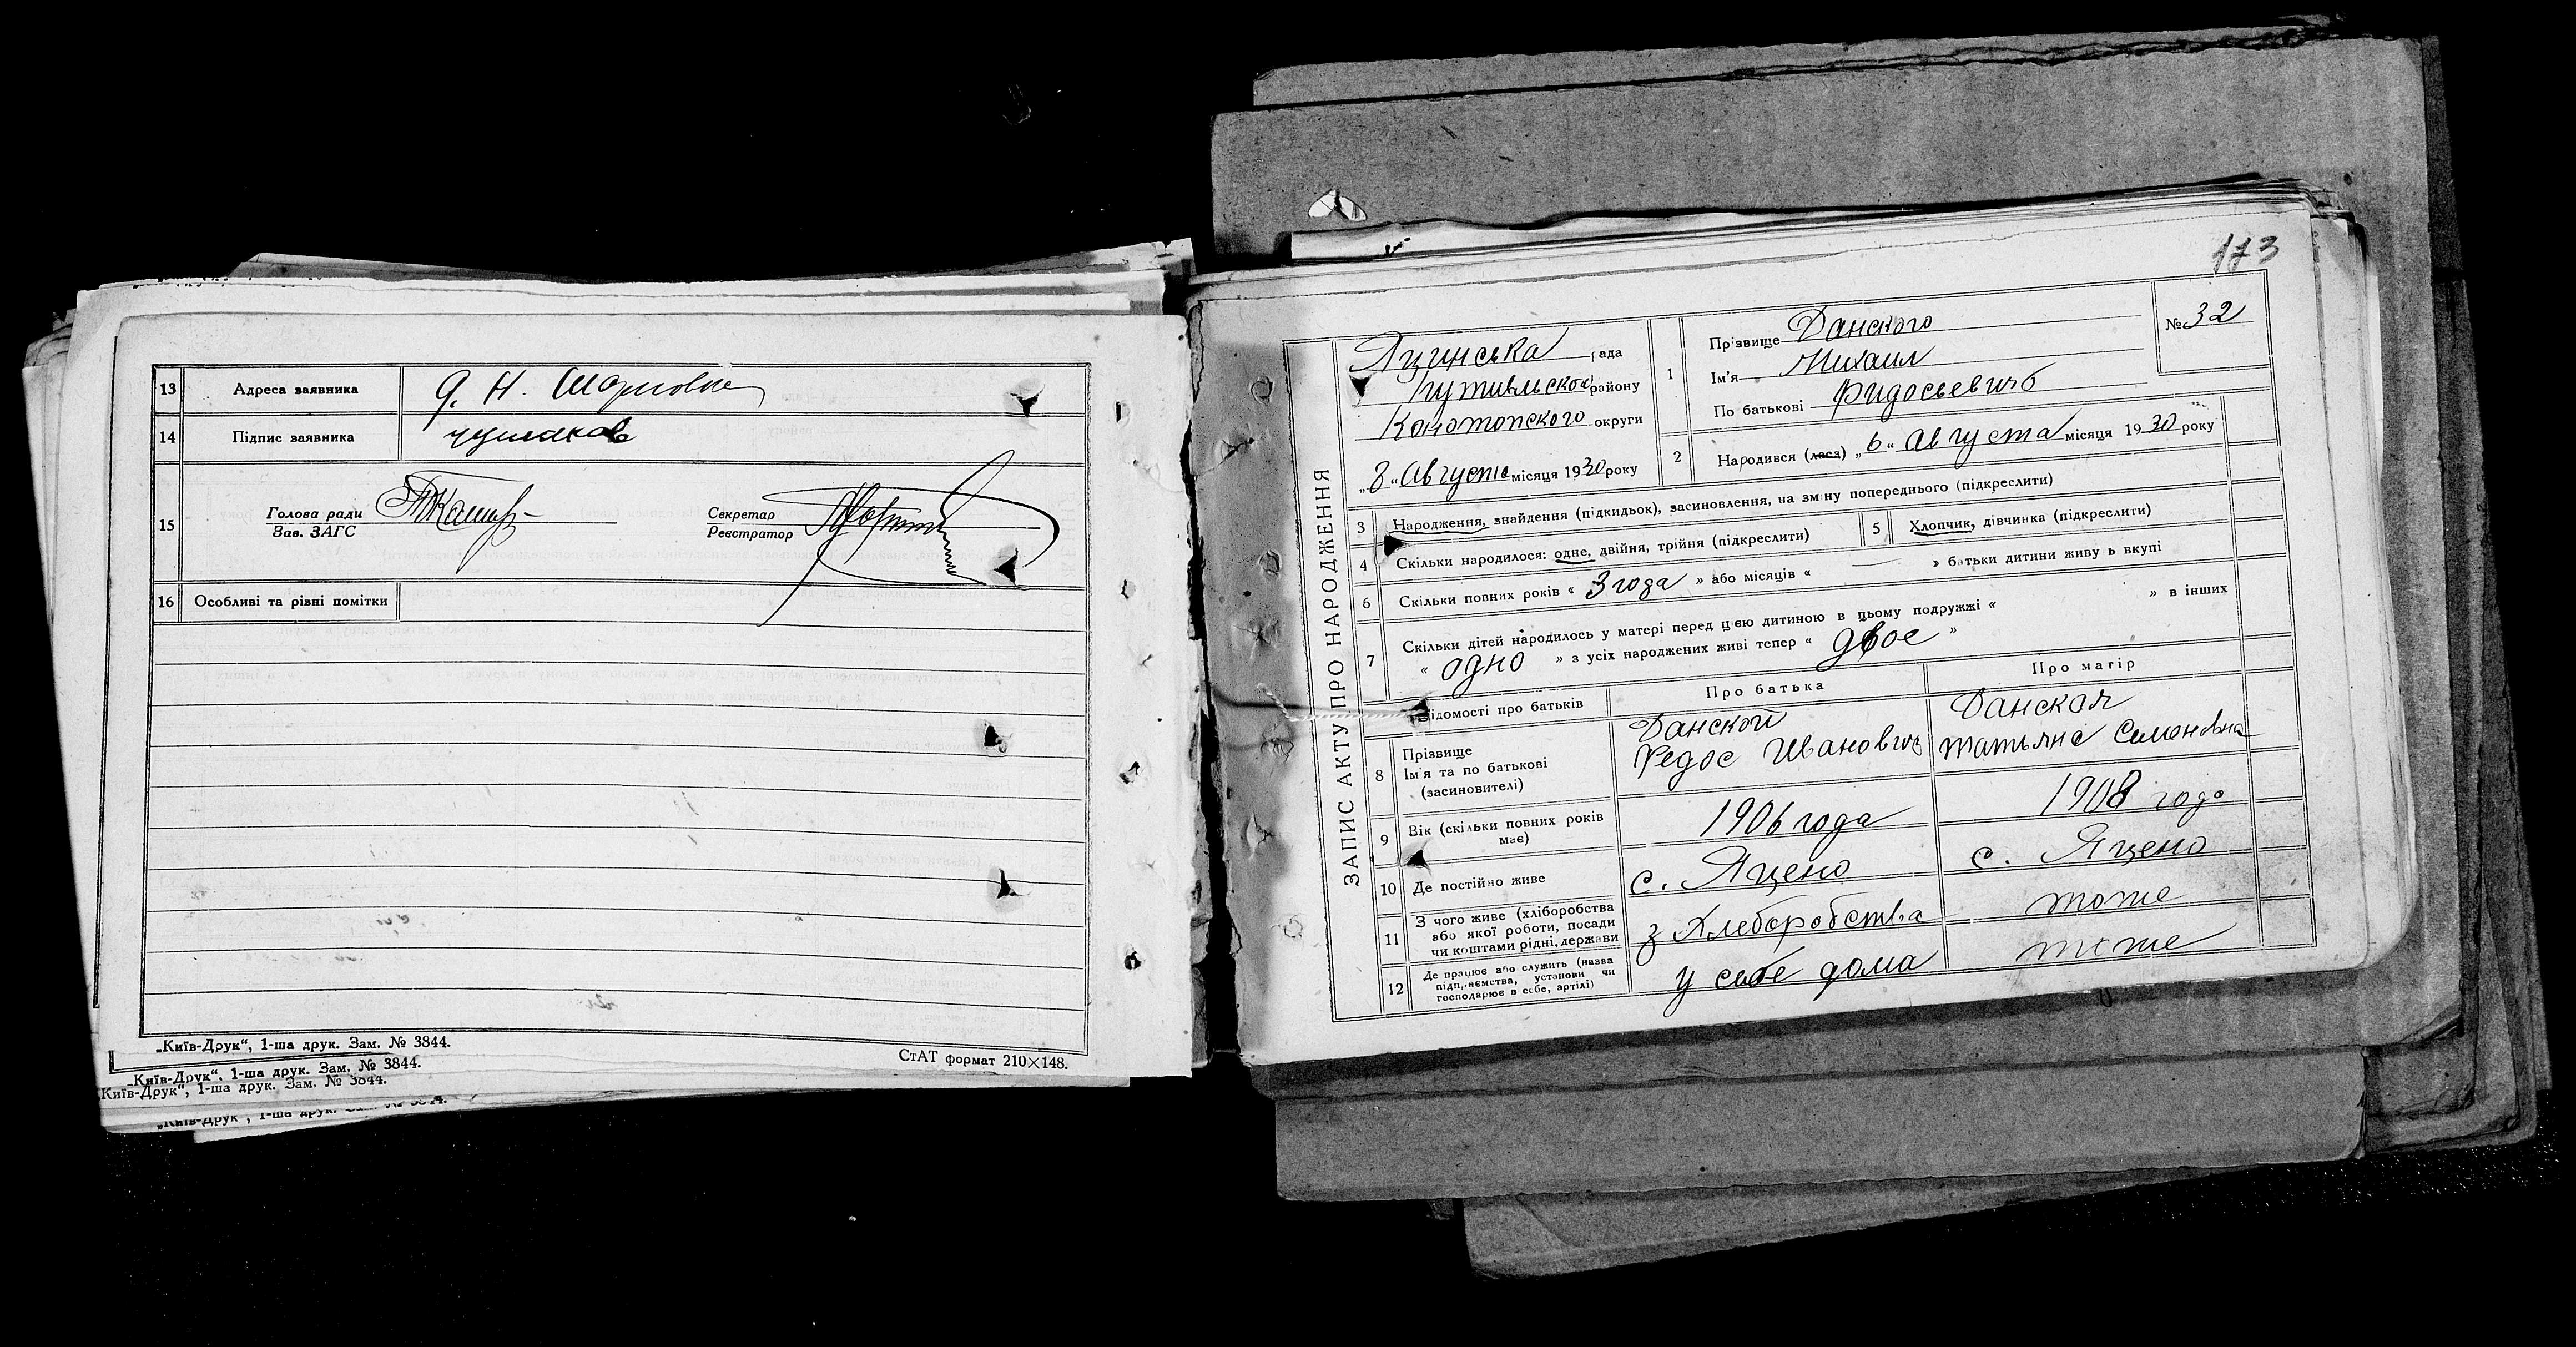 13 Адреса заявника
14 Підпис заявника
15 Голова ради
Зав. ЗАГС
Секретар
Реєстратор
16 Особливі та різні помітки
„Київ-Друк“, 1-ша друк. Зам. № 3844.
СтАТ формат 210×148.
„Київ-Друк“, 1-ша друк. Зам. № 3844.
„Київ-Друк“, 1-ша друк. Зам. № 3844.
173
ЗАПИС АКТУ ПРО НАРОДЖЕННЯ
Яцинська рада
району
Конотопского округи
„8“ Августа місяця 1930 року
1 Прізвище Данского
Ім'я Михаил
По батькові Фидосьевичь
№ 32
2 Народився (лася) „6“ Августа місяця 1930 року
3 Народження, знайдення (підкидьок), засиновлення, на зміну попереднього (підкреслити)
4 Скільки народилося: одне, двійня, трійня (підкреслити)
5 Хлопчик, дівчинка (підкреслити)
6 Скільки повних років « 3 года » або місяців « — » батьки дитини живуть вкупі
7 Скільки дітей народилось у матері перед цією дитиною в цьому подружжі « » в інших
« одно » з усіх народжених живі тепер « двое »
Відомості про батьків
Про батька
Про матір
8 Прізвище
Ім'я та по батькові
(засиновителі)
Данской
Федос Иванович
Данская
Татьяна Семеновна
9 Вік (скільки повних років має)
1906 года
1908 года
10 Де постійно живе
с. Яцено
с. Яцено
11 З чого живе (хліборобства
або якої роботи, посади
чи коштами рідні, держави
з Хлеборобства
тоже
12 Де працює або служить (назва
підприємства, установи чи
господарює в себе, артілі)
у себе дома
тоже